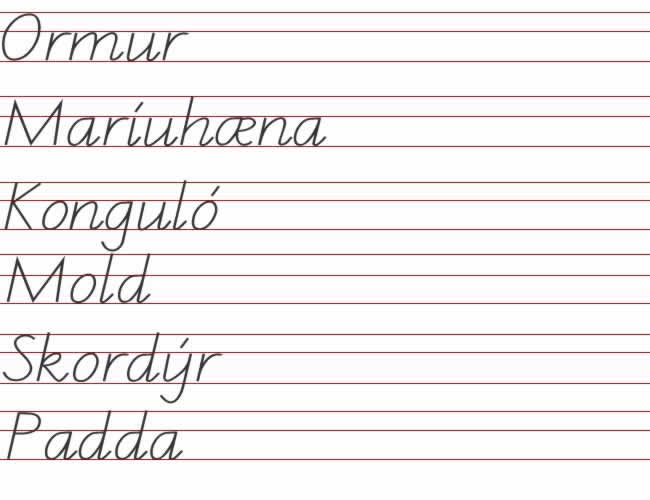 Ormur
Maríuhæna
Konguló
Mold
Skordýr
Padda